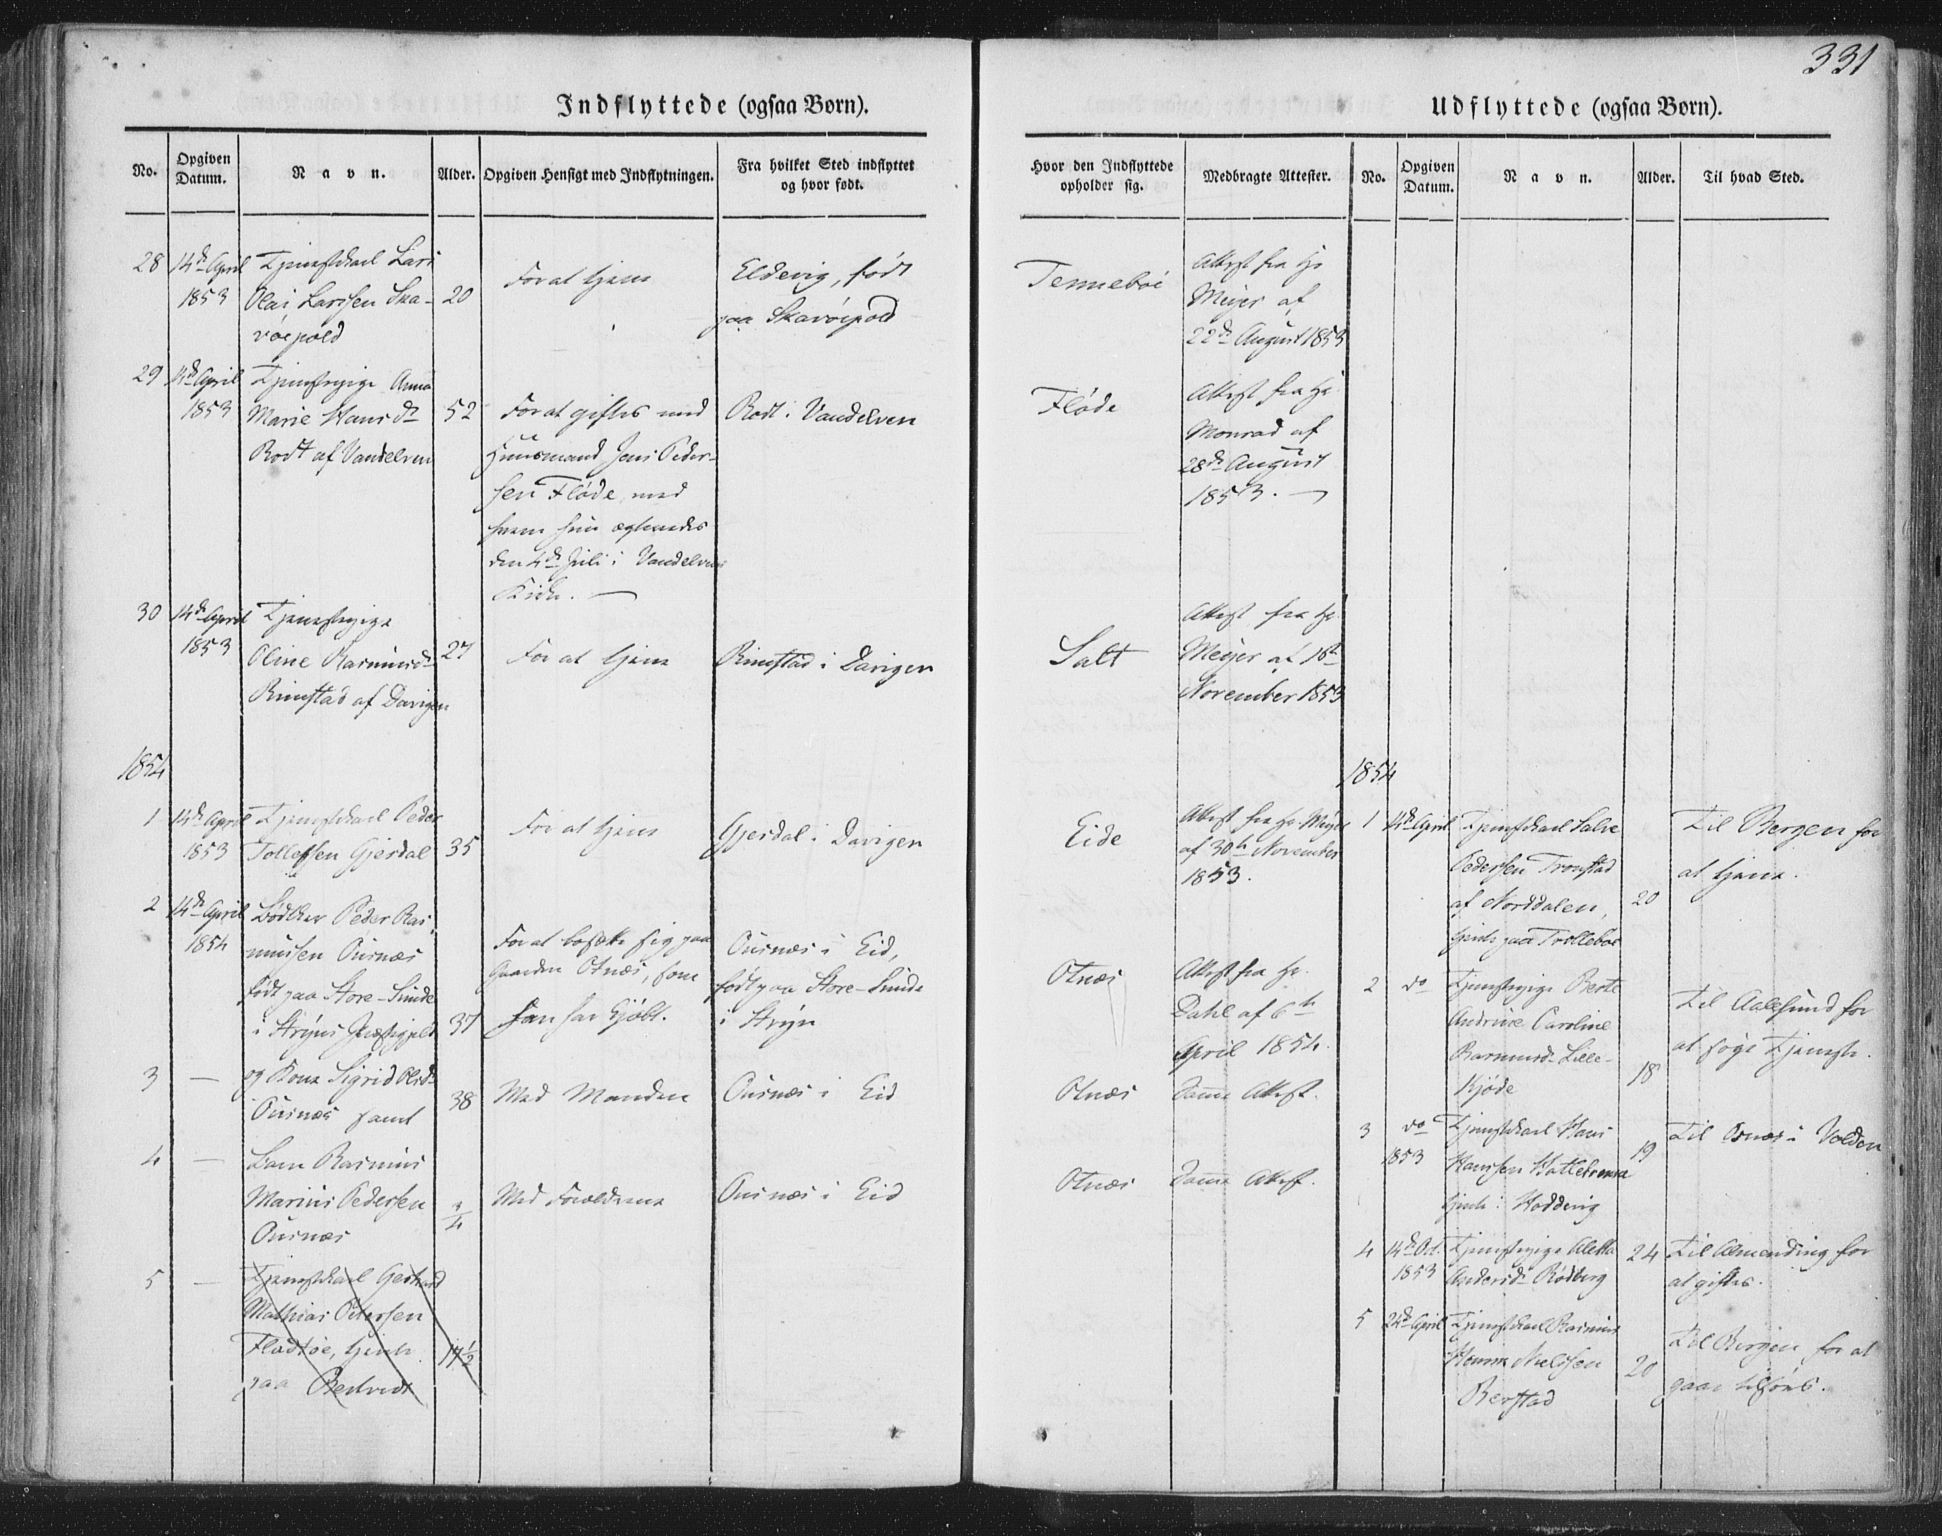 331
Indflyttede (ogsaa Børn).
No.
Opgiven Datum.
Navn.
Alder.
Opgiven Hensigt med Indflytningen.
Fra hvilket Sted indflyttet og hvor født.
Hvor den Indflyttede opholder sig.
Medbragte Attester.
Udflyttede (ogsaa Børn).
No.
Opgiven Datum.
Navn.
Alder.
Til hvad Sted.
28
14de April
1853
Tjenestekarl Lars
Olai Larssen Ska-
vøepold
20
For at tjene
Eldevig, født
paa Skavøepold
Tennebøe
Attest fra Hr
Meyer af
22de August 1853
29
14de April
1853
Tjenestepige Anna
Marie Hansdr
Rodt af Vandelven
52
For at giftes med
Huusmand Jens Peder-
sen Fløde, med
hvem hun ægtevies
den 4de Juli i Vandelvens
Kirke.
Rodt i Vandelven
Fløde
Attest fra Hr
Monrad af
28de August
1853.
30
14de April
1853
Tjenestepige
Oline Rasmusdr
Rimstad af Davigen
27
For at tjene
Rimstad i Davigen
Salt
Attest fra Hr
Meyer af 18de
November 1853
1854
1
14de April
1853
Tjenestekarl Peder
Tollefsen Gjerdal
35
For at tjene
Gjerdal i Davigen
Eide
Attest fra Hr. Meyer
af 30te November
1853.
2
14de April
1854
Bødker Peder Ras-
mussen Ousnæs
født paa Store-Sunde
i Stryns Præstegjeld
37
For at bosætte sig paa
Gaarden Otnæs, som
han har kjøbt.
Ousnæs i Eid,
født paa Store-Sunde
i Stryn
Otnæs
Attest fra Hr.
Dahl af 6te
April 1854.
3
—
og Kone Sigrid Olsdr
Ousnæs samt
38
Med Manden
Ousnæs i Eid
Otnæs
Samme Attest.
4
—
Barn Rasmus
Marius Pedersen
Ousnæs
3/4
Med Forældrene
Ousnæs i Eid
Otnæs
Samme Attest.
5
—
Tjenestekarl Gerhard
Mathias Petersen
Flødtøe, tjente
paa
17 1/2
1854
1
14de April
Tjenestekarl Salve
Pedersen Tronstad
af Norddalen,
tjente paa Trollebøe
20
Til Bergen for
at tjene.
2
do
Tjenestepige Berte
Andrine Caroline
Rasmusdr Lille-
Kjøde
18
Til Aalesund for
at søge Tjeneste.
3
do
1853
Tjenestekarl Hans
Hanssen
tjente i Hoddevig
19
Til Osnæs i Volden
4
14de Oct.
1853
Tjenestepige Aletta
Andersdr Rødberg
24
Til Almending for
at giftes.
5
24de April
Tjenestekarl Rasmus
Henrik Nielssen
Berstad
20
Til Bergen for at
gaae tilsøes.